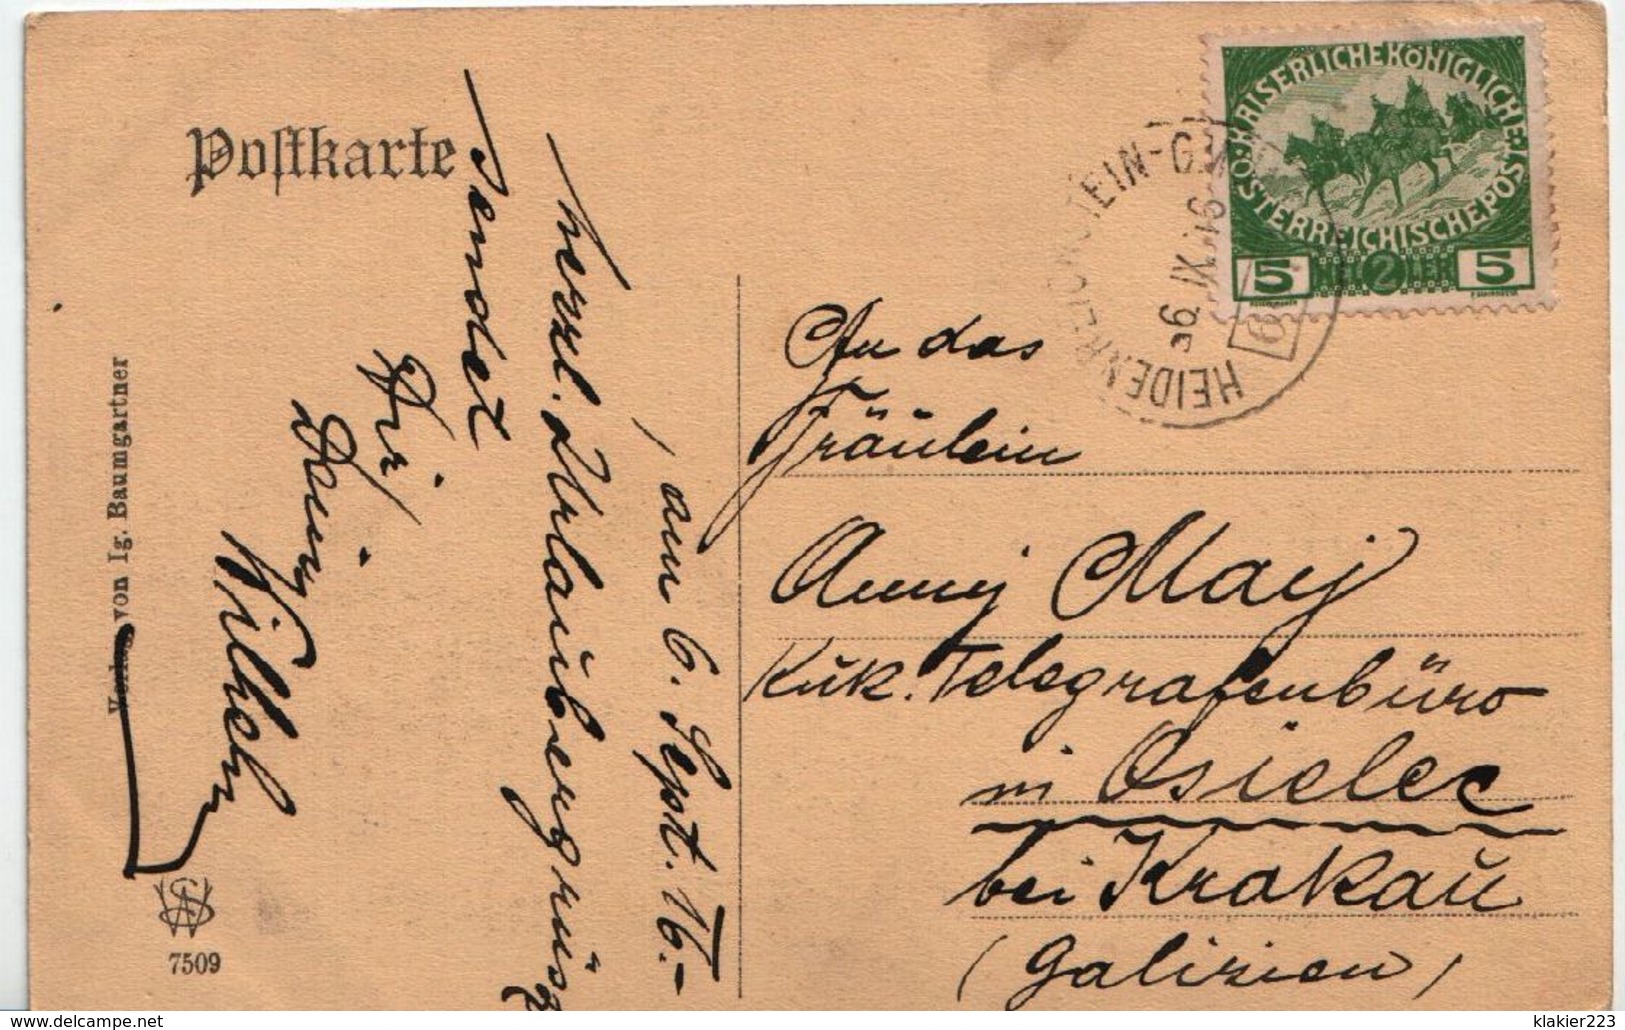 Postkarte
KAISERLICHE KÖNIGLICHE
ÖSTERREICHISCHE POST
5 HELLER 5
2
HEIDENREICHSTEIN-G
6 IX 16
, am 6. Sept. 16.-
herzl. Urlaubergrüsz
sendet
Dir
Dein
Wilhelm
An das
Fräulein
Anny May
Kuk. Telegrafenbüro
in Osielec
bei Krakau
(Galizien)
Verlag von Ig. Baumgartner
7509
delcampe.net
klakier223